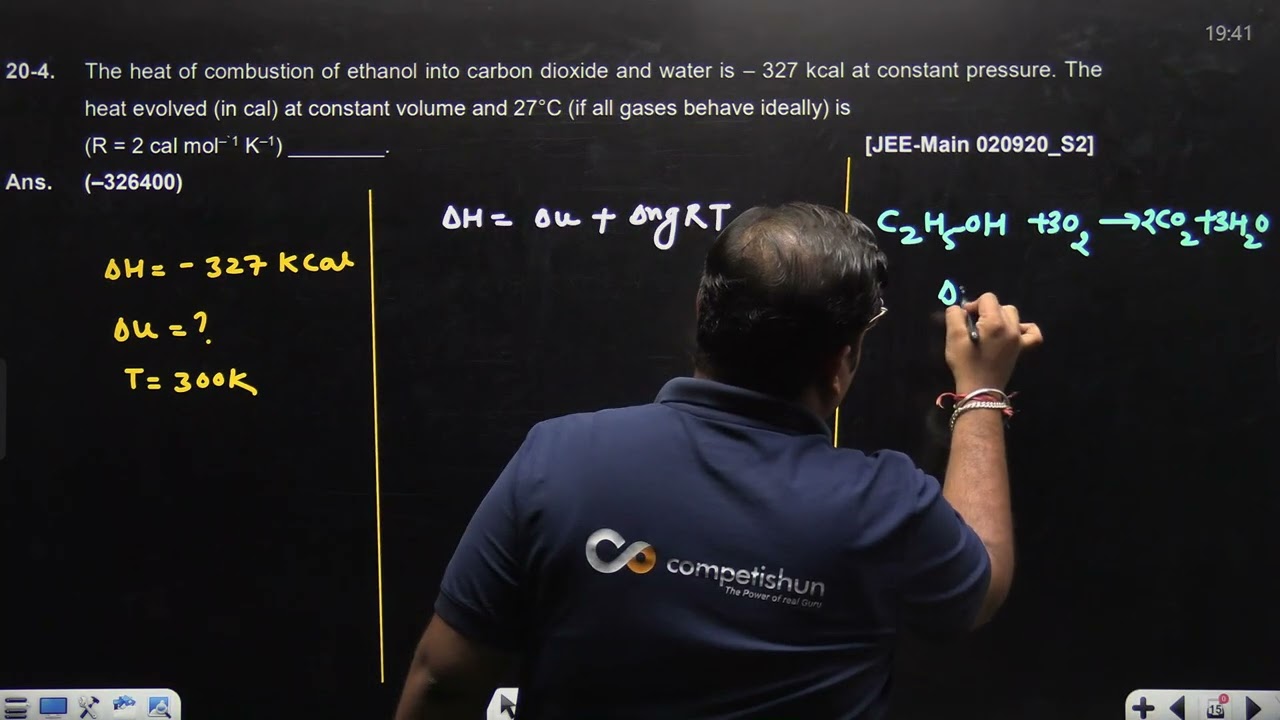 19:41
20-4. The heat of combustion of ethanol into carbon dioxide and water is – 327 kcal at constant pressure. The
heat evolved (in cal) at constant volume and 27°C (if all gases behave ideally) is
(R = 2 cal mol⁻¹ K⁻¹) ________. [JEE-Main 020920_S2]
Ans. (–326400)
ΔH = - 327 KCal
Δu = ?
T = 300K
ΔH = Δu + ΔngRT
C₂H₅OH +3O₂ →2CO₂+3H₂O
Δ
competishun
The Power of real Guru
15
0